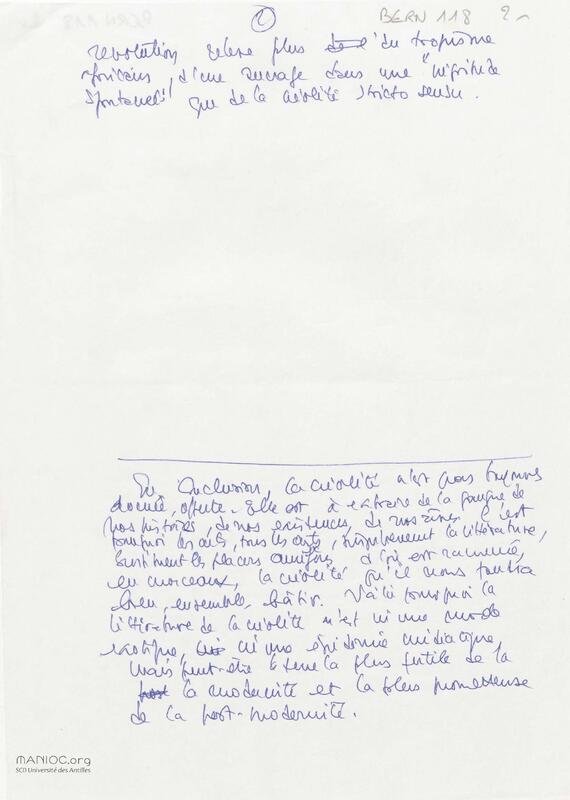 2 BERN 118 2
révolution relève plus du tropisme
africain, d'une ancrage dans une "négritude
spontanée" que de la créolité stricto sensu.
En conclusion, la créolité n'est pas toujours
donnée, offerte. Elle est à extraire de la gangue de
nos histoires, de nos existences, de nos âmes. C'est
pourquoi les arts, tous les arts, singulièrement la littérature,
sont les placers d'où est ramenée,
en morceaux, la créolité qu'il nous faudra
bien, ensemble, bâtir. Voilà pourquoi la
littérature de la créolité n'est ni une mode
exotique, ni une épidémie médiatique
mais peut-être la plus fertile de la
la modernité et la plus prometteuse
de la post-modernité.
MANIOC.org
SCD Université des Antilles